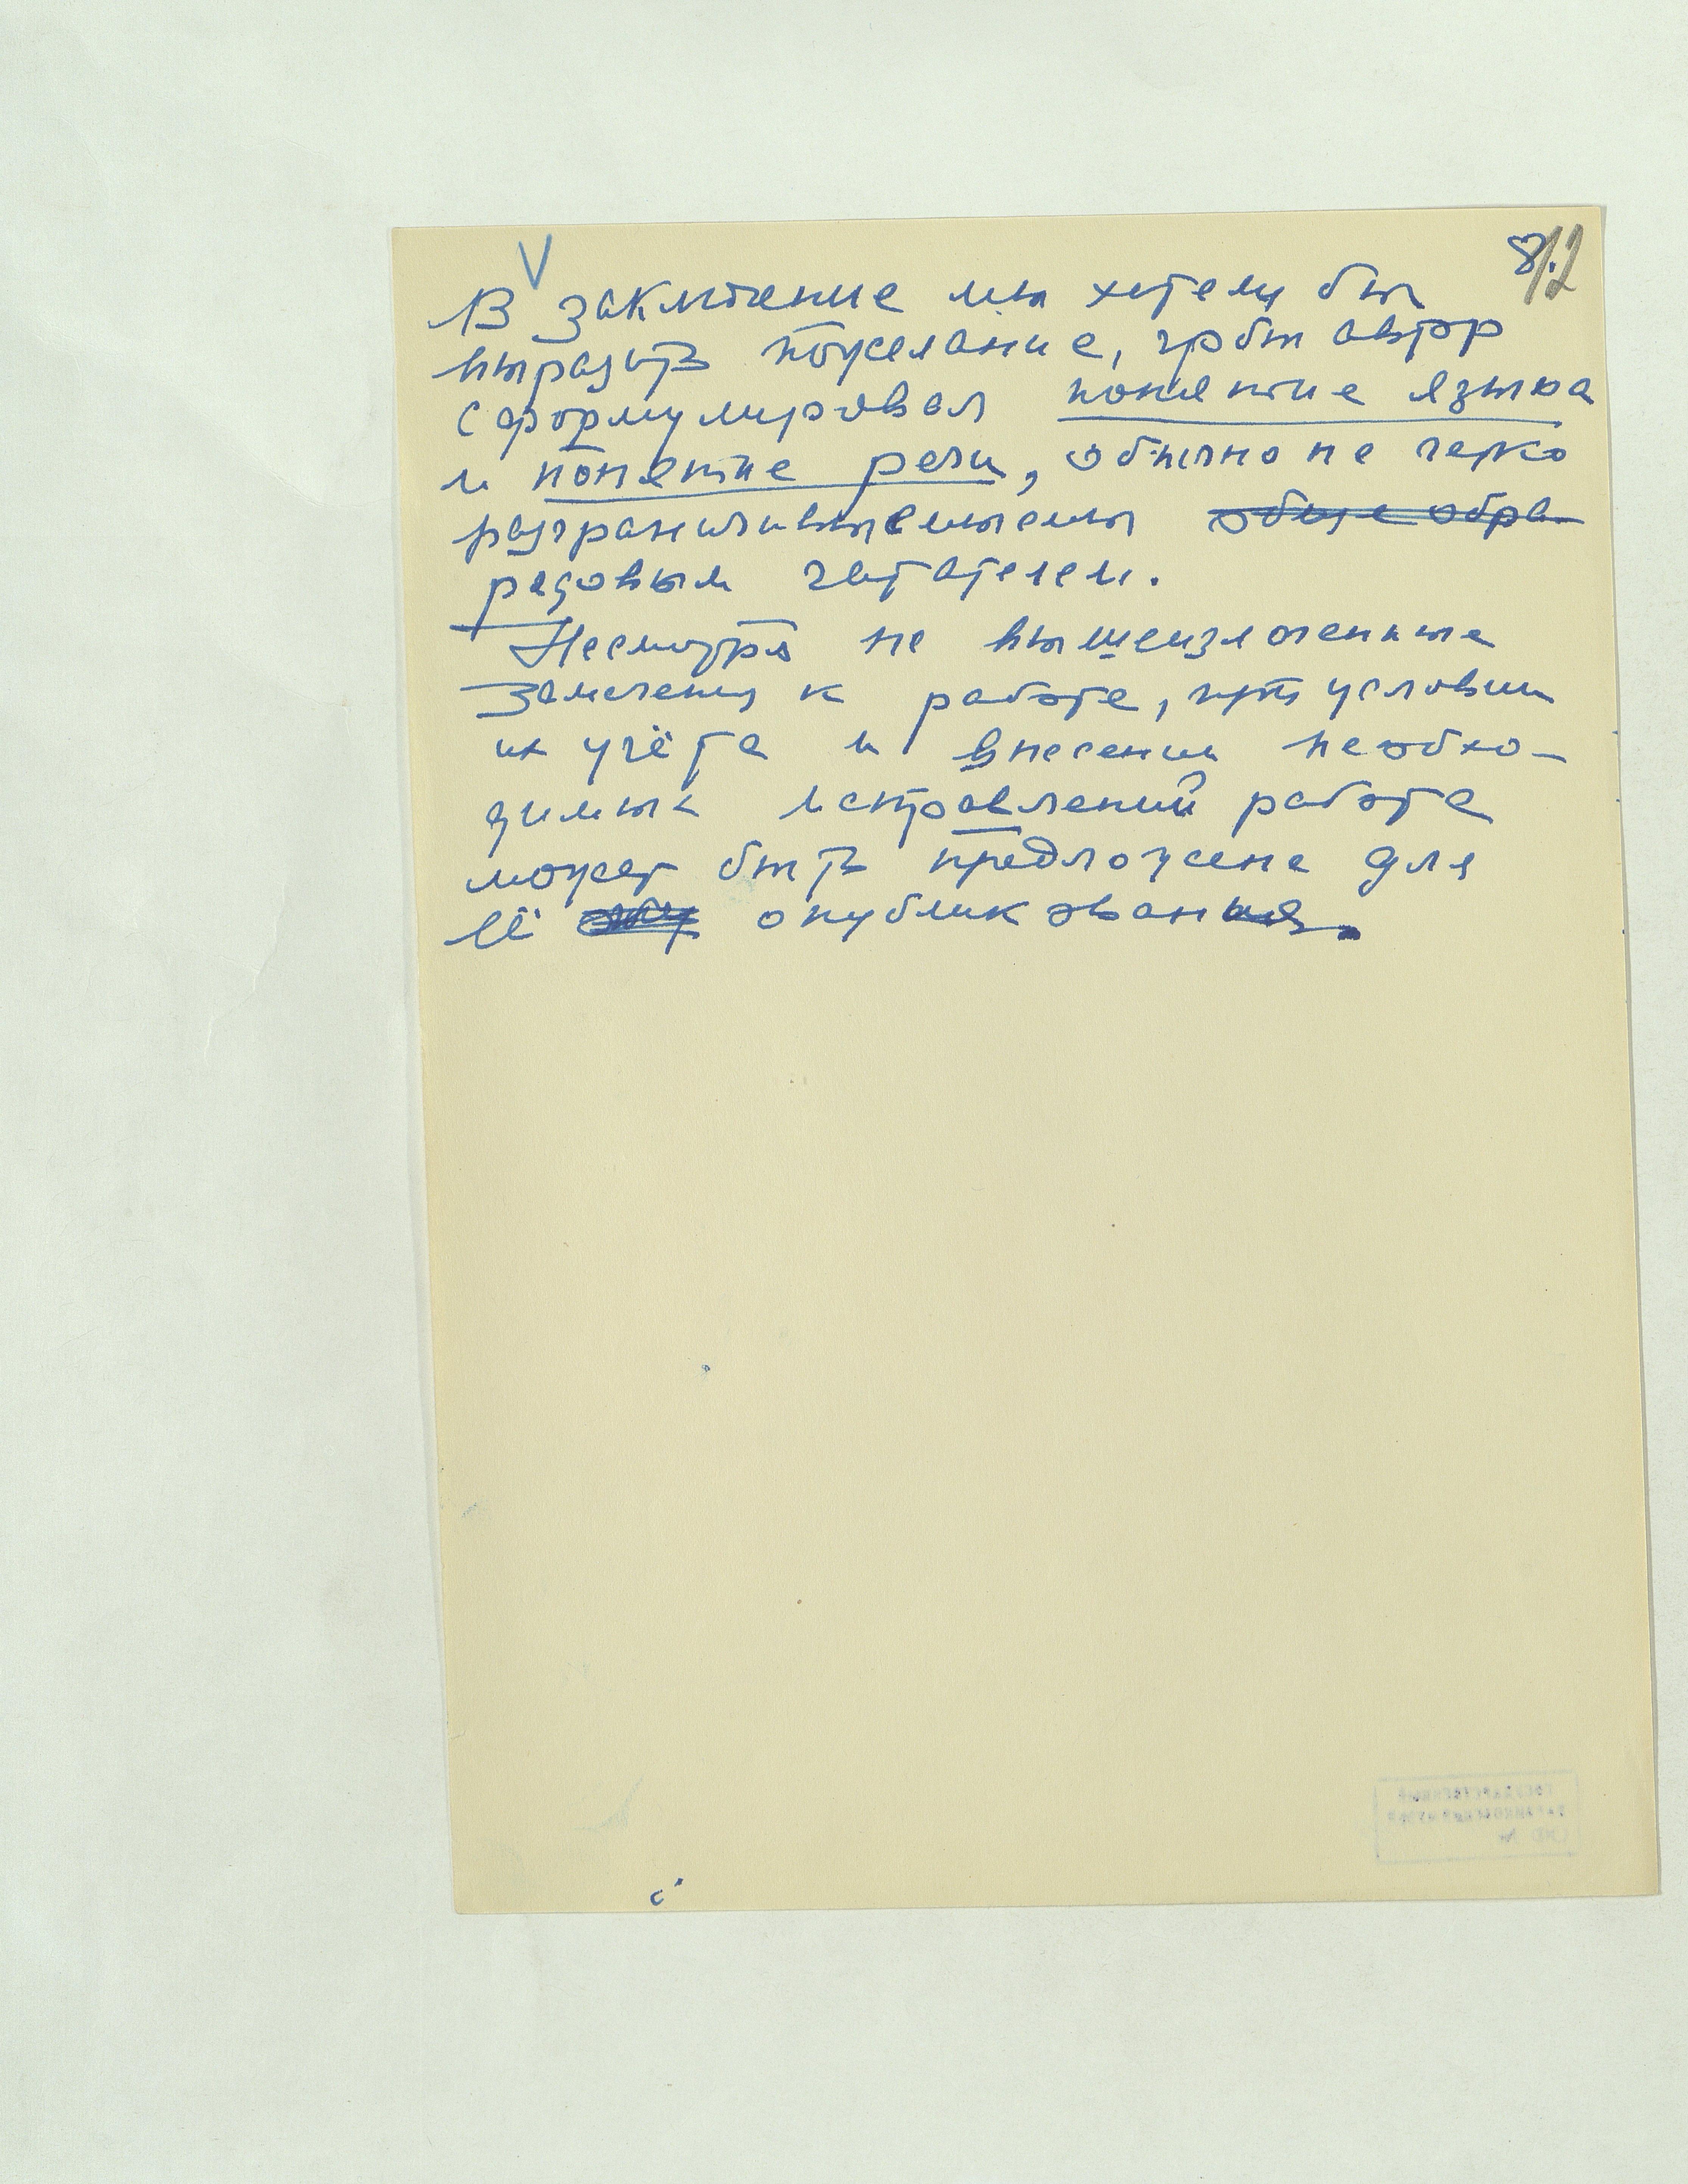 V
8. 12
В заключение мы хотели бы
выразить пожелание, чтобы автор
сформулировал понятие языка
и понятие речи, обычно не четко
разграничиваемыемы общеобра-
рядовым читателем.
Несмотря на вышеизложенные
замечения к работе, при условии
их учёта и внесении необхо-
димых исправлений работа
может быть предложена для
её опубликования.
ГОСУДАРСТВЕННЫЙ